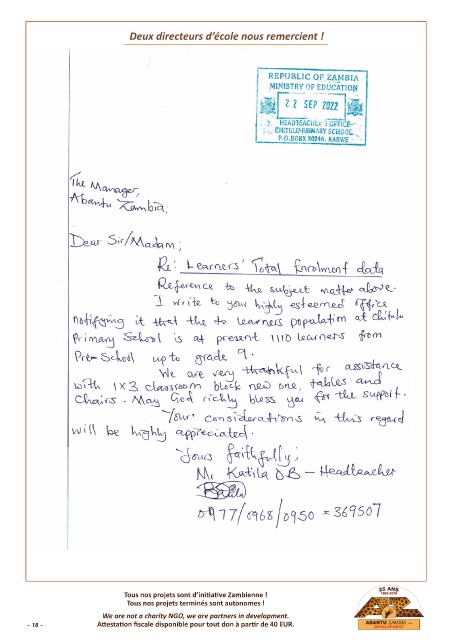 Deux directeurs d'école nous remercient !
REPUBLIC OF ZAMBIA
MINISTRY OF EDUCATION
22 SEP 2022
HEADTEACHER'S OFFICE
CHITULU PRIMARY SCHOOL
P.O.BOBX 80246, KABWE
The Manager,
Abantu Zambia;
Dear Sir/Madam;
Re: Learners' Total Enrolment data
Reference to the subject matter above.
I write to your highly esteemed office
notifying it that the to learners population at Chitulu
Primary School is at present 1110 learners from
Pre-School up to grade 9.
We are very thankful for assistance
with 1x3 classroom block new one, tables and
Chairs. May God richly bless you for the support.
Your considerations in this regard
will be highly appreciated.
Yours faithfully;
Mr Katila DB - Headteacher
0977/0968/0950 = 369507
Tous nos projets sont d'initiative Zambienne !
Tous nos projets terminés sont autonomes !
We are not a charity NGO, we are partners in development.
Attestation fiscale disponible pour tout don à partir de 40 EUR.
- 18 -
25 ANS
ABANTU ZAMBIA
DEVELOPMENT